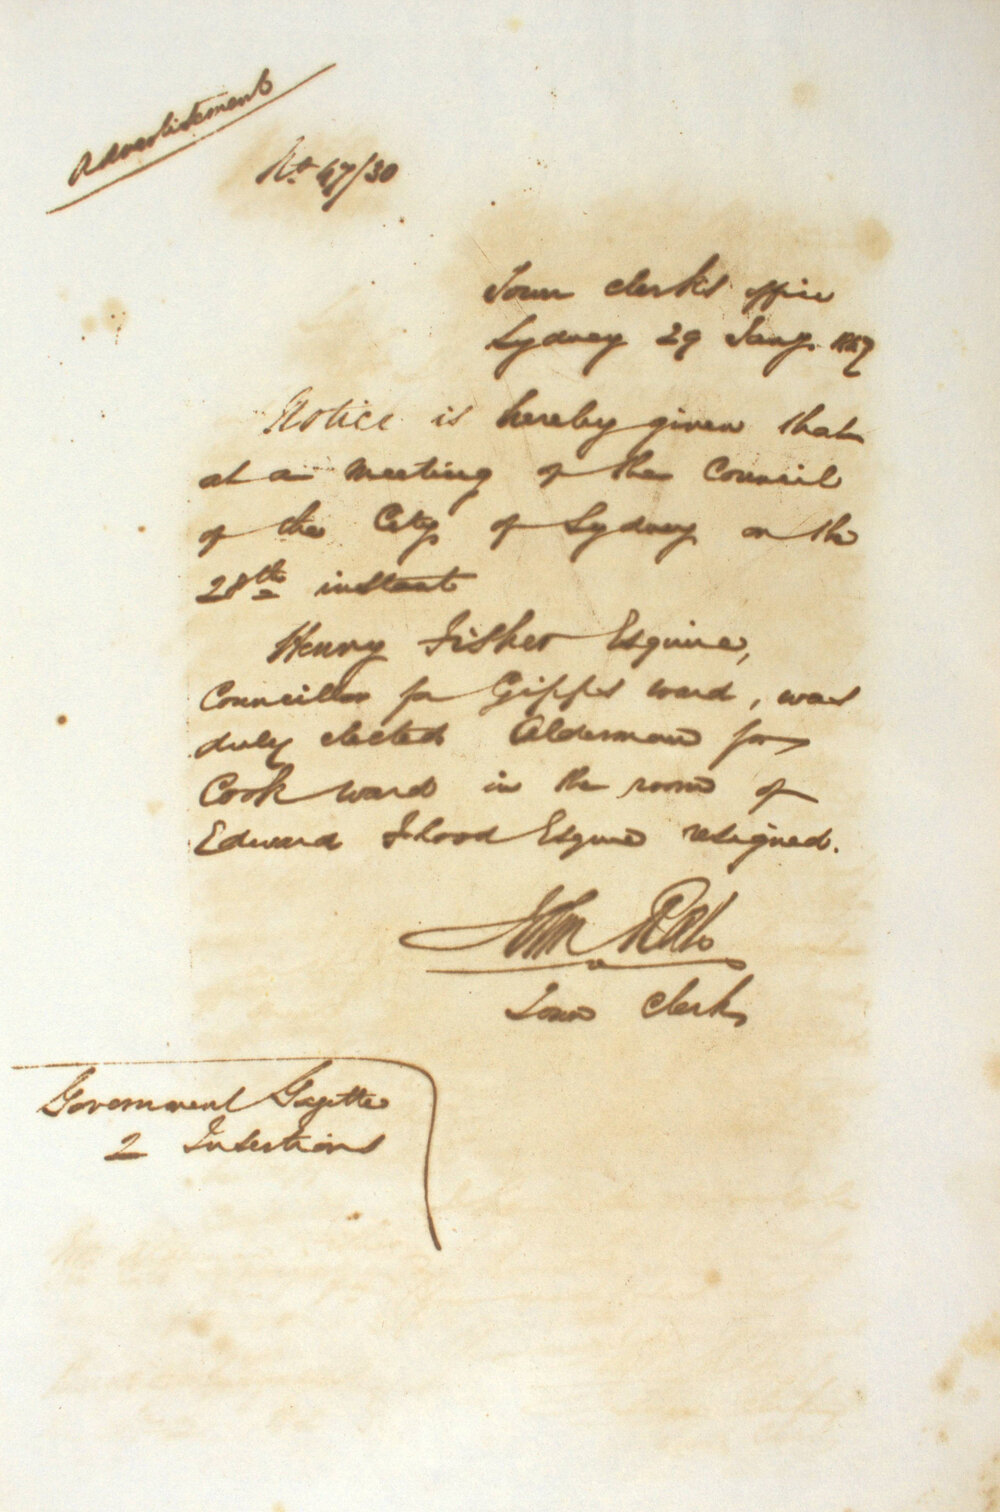 Advertisement
No. 47/30
Town Clerk's Office
Sydney 29 Jany. 1847
Notice is hereby given that
at a meeting of the Council
of the City of Sydney on the
28th instant
Henry Fisher Esquire,
Councillor for Gipps ward, was
duly elected Alderman for
Cook ward in the room of
Edward Flood Esquire resigned.
John Rae
Town Clerk
Government Gazette
2 Insertions